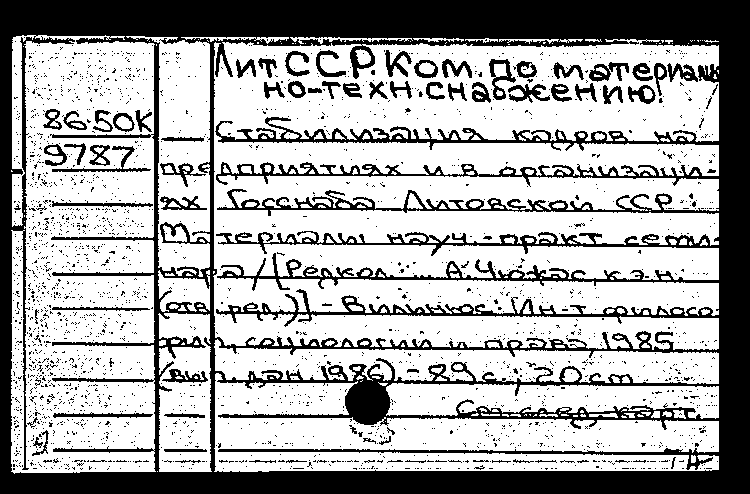 Лит ССР. Ком. по материаль
но-техн. снабжению.
86.50К
Стабилизация кадров на
9787
предприятиях и в организаци-
ях Госснаба Литовской ССР:
Материалы науч.-практ. семи-
нара / [Редкол.: ... А. Чюжас, к.э.н.
(отв. ред.)] - Вильнюс: Ин-т филосо-
фии, социологии и права, 1985
(вып. дан. 1986). - 89 с.; 20 cm
См. след. карт.